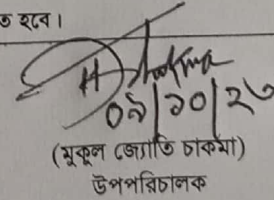 ত হবে।
০৯/১০/২৩
(মুকুল জ্যোতি চাকমা)
উপপরিচালক